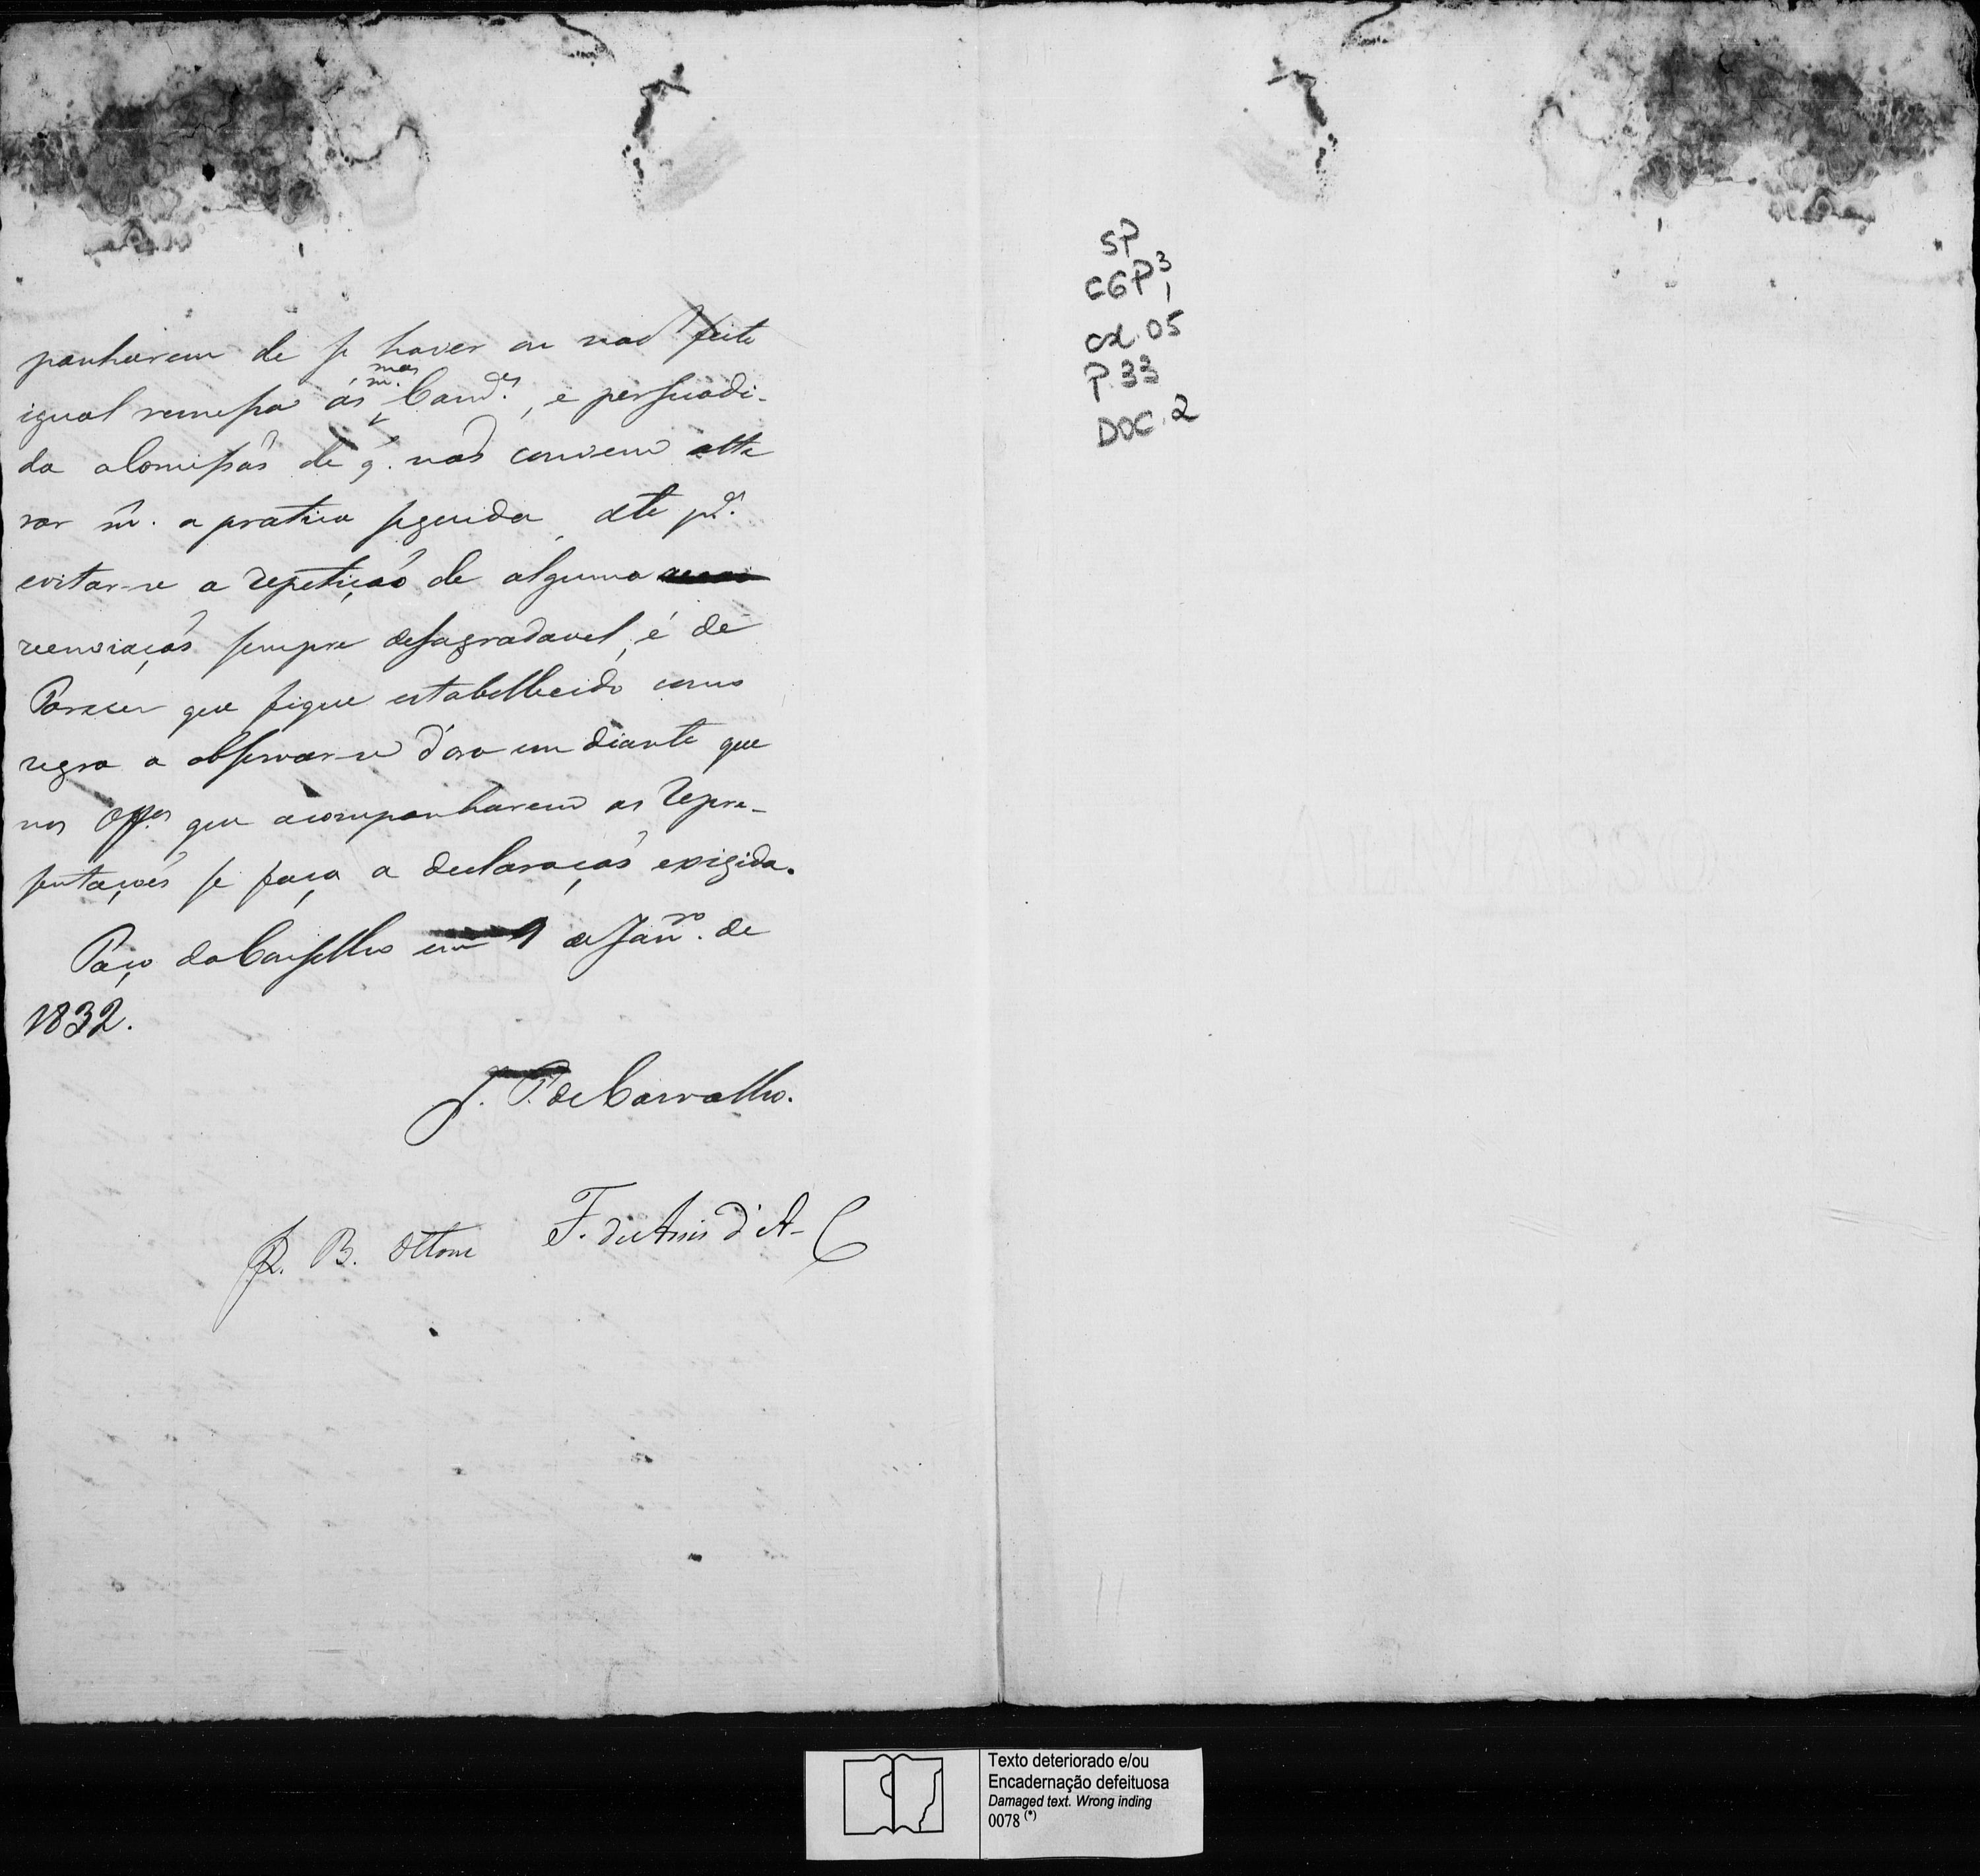 panharem de se haver ou naõ feito
igual remessa ás m.mas Cam.es, e persuadi-
da a Comissaõ de q. naõ convem alte
rar m. a pratica seguida, até p.a
evitar-se a repetiçaõ de alguma
renviaçaõ sempre desagradavel, é de
Parecer que fique estabellecido como
regra a observar-se d'ora em diante que
nos Off.os que acompanharem as repre-
sentações se faça a declaraçaõ exigida.
Paço do Conselho em 9 de Jan.ro de
1832.
J. P. de Carvalho.
J. B. Ottoni F. de Assis d'A-
SP
CGP3,1
cx.05
P.33
DOC.2
Texto deteriorado e/ou
Encadernação defeituosa
Damaged text. Wrong inding
0078 (*)